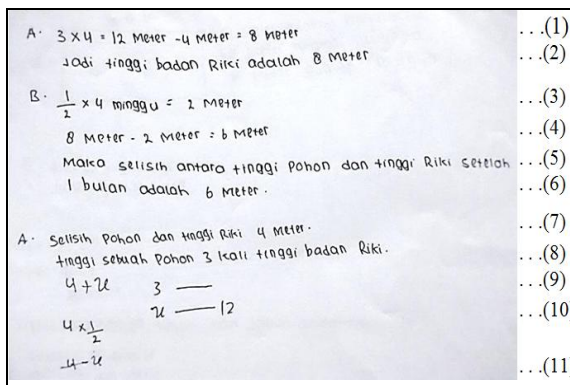 A. 3 x 4 = 12 Meter - 4 Meter = 8 Meter ...(1)
Jadi tinggi badan Riki adalah 8 Meter ...(2)
B. 1/2 x 4 minggu = 2 Meter ...(3)
8 Meter - 2 Meter = 6 Meter ...(4)
Maka selisih antara tinggi Pohon dan tinggi Riki setelah ...(5)
1 bulan adalah 6 Meter. ...(6)
A. Selisih Pohon dan tinggi Riki 4 Meter. ...(7)
tinggi sebuah Pohon 3 kali tinggi badan Riki. ...(8)
4 + x 3 — ...(9)
x — 12 ...(10)
4 x 1/2
4 - x ...(11)